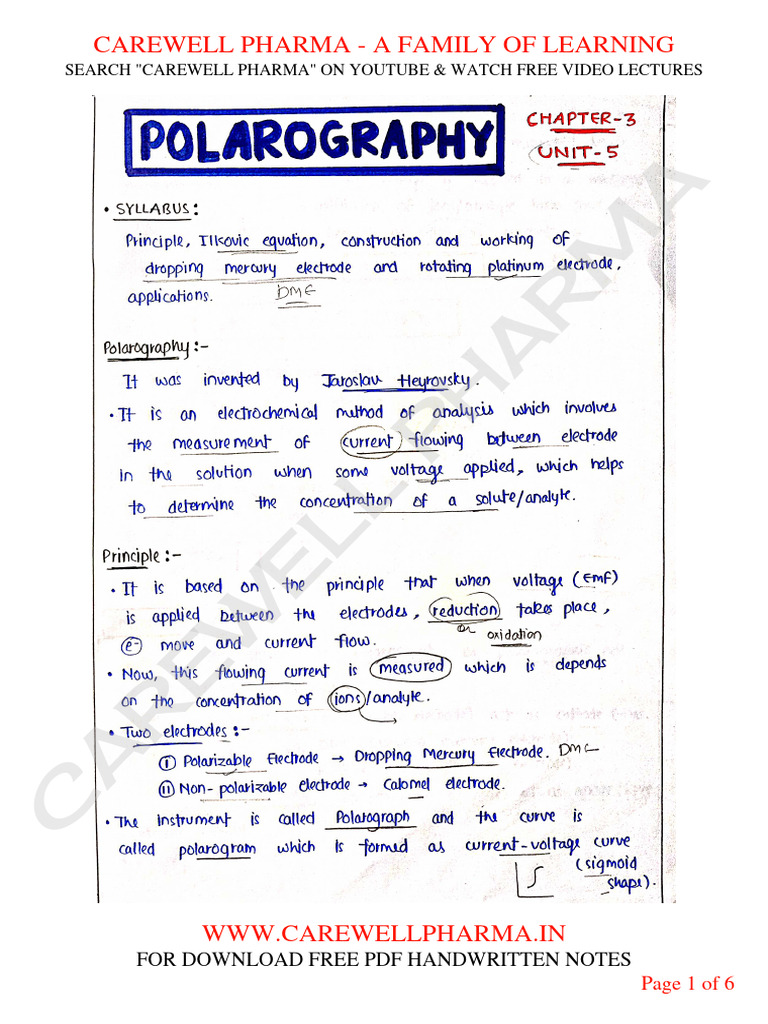 CAREWELL PHARMA - A FAMILY OF LEARNING
SEARCH "CAREWELL PHARMA" ON YOUTUBE & WATCH FREE VIDEO LECTURES
POLAROGRAPHY
CHAPTER-3
UNIT-5
• SYLLABUS:
Principle, Ilkovic equation, construction and working of
dropping mercury electrode and rotating platinum electrode,
applications. DME
Polarography:-
It was invented by Jaroslav Heyrovsky.
• It is an electrochemical method of analysis which involves
the measurement of current flowing between electrode
in the solution when some voltage applied, which helps
to determine the concentration of a solute/analyte.
Principle:-
• It is based on the principle that when voltage (EMF)
is applied between the electrodes, reduction takes place,
or oxidation
e- move and current flow.
• Now, this flowing current is measured which is depends
on the concentration of ions/analyte.
• Two electrodes:-
(i) Polarizable Electrode → Dropping Mercury Electrode. DME
(ii) Non-polarizable electrode → Calomel electrode.
• The instrument is called Polarograph and the curve is
called polarogram which is formed as current-voltage curve
(sigmoid
shape).
CAREWELL PHARMA
WWW.CAREWELLPHARMA.IN
FOR DOWNLOAD FREE PDF HANDWRITTEN NOTES
Page 1 of 6